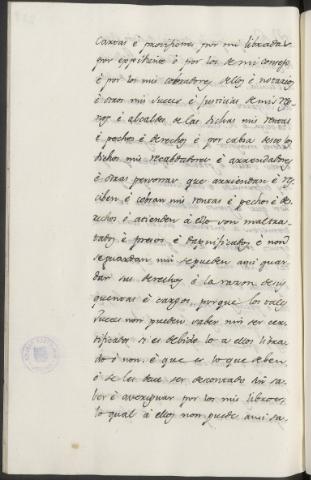 cartas è provisiones por mi libradas
por expediente è por los de mi consejo
è por los mis contadores dellos è notarios
è otros mis Jueces è Justicias de mis rey-
nos è alcaldes de las dichas mis rentas
è pechos è derechos è por cabsa desto los
dichos mis recabdadores è arrendadores
è otras personas que arriendan è re-
ciben è cobran mis rentas è pechos è de-
rechos è atienden à ello son maltra-
tados è presos è dapnificados è non
se guardan nin se pueden ansi guar-
dar sus derechos è la razon de sus
quentas è cargos, porque los tales
Jueces non pueden saber nin ser cer-
tificados si es debido lo à ellos libra-
do ò non è que es lo que deben
è se les deve ser descontado sin sa-
ber è averiguar por los mis libros
lo qual à ellos non puede ansi sa-